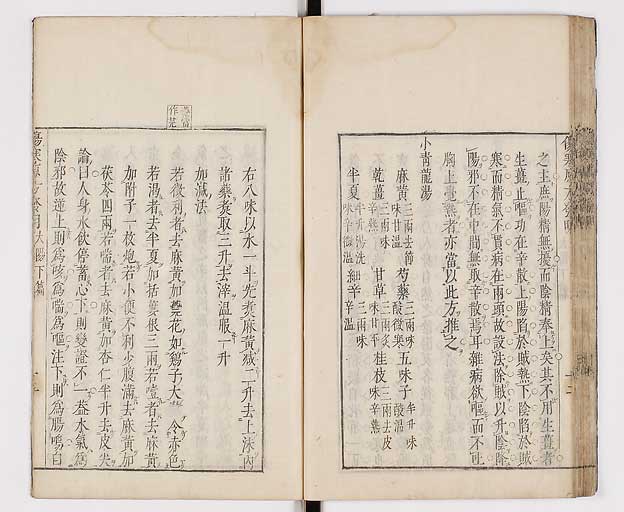 之主庶陽精無擾而陰精奉上矣其不用生薑者
生薑止嘔功在辛散上陽陷於賊熱下陰陷於賊
寒而精氣不貫病在兩頭故設法除賊以升陰降
陽邪不在中間無取辛散焉耳雜病欲嘔而不吐
胸上毫熱者亦當以此方推之
小青龍湯
麻黃 三兩去節 味甘溫 芍藥 三兩味酸微寒 五味子 半升味酸溫
乾薑 三兩味辛熱 甘草 三兩炙味甘平 桂枝 三兩去皮味辛熱
半夏 半升湯洗味辛微溫 細辛 三兩味辛溫
右八味以水一斗先煑麻黃減二升去上沫內
諸藥煑取三升去滓溫服一升
加減法
若微利者去麻黃加蕘花如鷄子大 令赤色
若渴者去半夏加括蔞根三兩若噎者去麻黃
加附子一枚炮若小便不利少腹滿去麻黃加
茯苓四兩若喘者去麻黃加杏仁半升去皮尖
論曰人身水飲停蓄心下則變證不一蓋水氣爲
陰邪故逆上則爲咳爲喘爲嘔注下則爲腸鳴自
太陽下篇